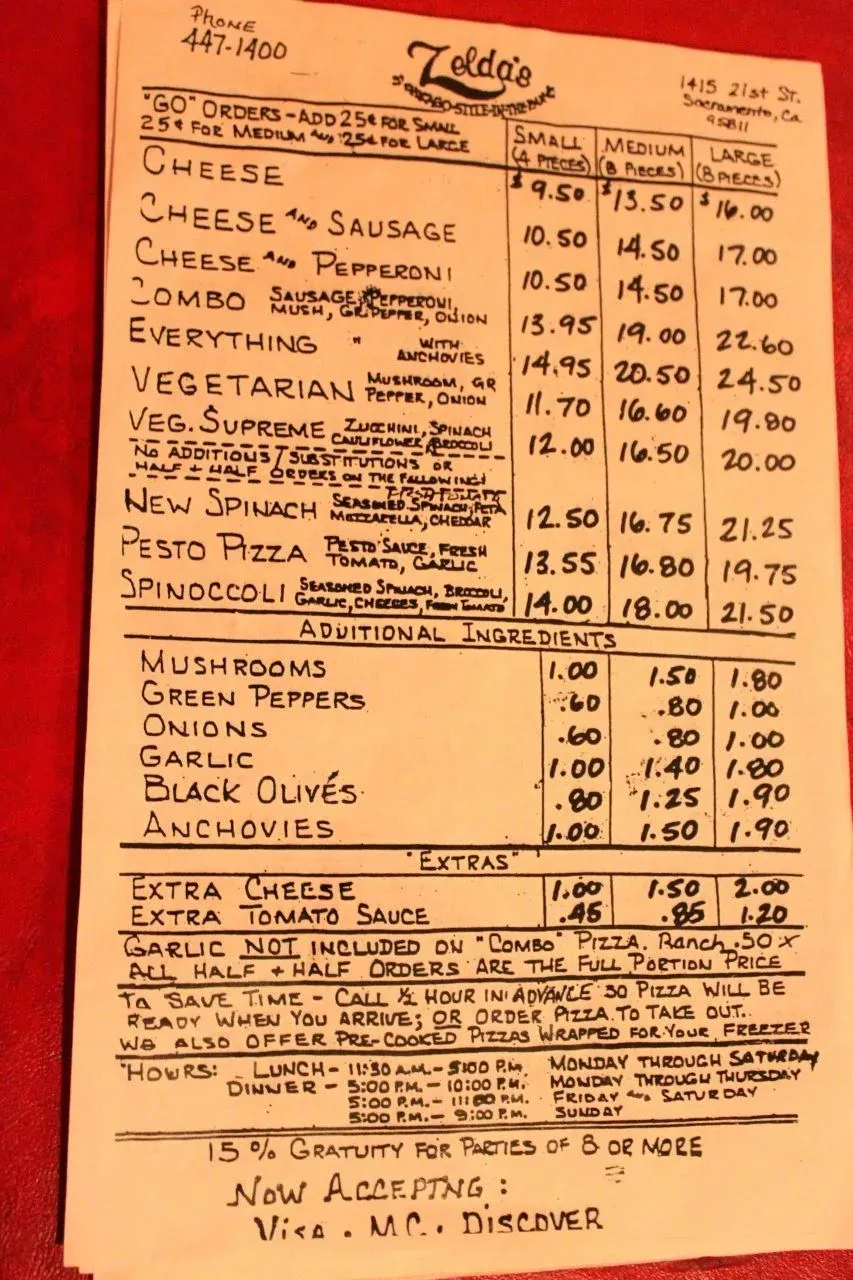 PHONE
447-1400
Zelda's
CHICAGO-STYLE-IN-THE-PAN
1415 21st ST.
Sacramento, Ca
95811
"GO" ORDERS - ADD 25¢ FOR SMALL
25¢ FOR MEDIUM AND 25¢ FOR LARGE
SMALL (4 PIECES) MEDIUM (8 PIECES) LARGE (8 PIECES)
CHEESE $9.50 $13.50 $16.00
CHEESE AND SAUSAGE 10.50 14.50 17.00
CHEESE AND PEPPERONI 10.50 14.50 17.00
COMBO SAUSAGE, PEPPERONI, MUSH, GR. PEPPER, ONION 13.95 19.00 22.60
EVERYTHING " WITH ANCHOVIES 14.95 20.50 24.50
VEGETARIAN MUSHROOM, GR PEPPER, ONION 11.70 16.60 19.80
VEG. SUPREME ZUCCHINI, SPINACH CAULIFLOWER, BROCCOLI 12.00 16.50 20.00
NO ADDITIOUS / SUBSTITUTIONS OR
HALF + HALF ORDERS ON THE FALLOWING!
NEW SPINACH SEASONED SPINACH, FETA MOZZARELLA, CHEDDAR 12.50 16.75 21.25
PESTO PIZZA PESTO SAUCE, FRESH TOMATO, GARLIC 13.55 16.80 19.75
SPINOCCOLI SEASONED SPINACH, BROCCOLI, GARLIC, CHEESES, FRESH TOMATO 14.00 18.00 21.50
ADDITIONAL INGREDIENTS
MUSHROOMS 1.00 1.50 1.80
GREEN PEPPERS .60 .80 1.00
ONIONS .60 .80 1.00
GARLIC 1.00 1.40 1.80
BLACK OLIVÉS .80 1.25 1.90
ANCHOVIES 1.00 1.50 1.90
"EXTRAS"
EXTRA CHEESE 1.00 1.50 2.00
EXTRA TOMATO SAUCE .45 .85 1.20
GARLIC NOT INCLUDED ON "COMBO" PIZZA. Ranch .50 x
ALL HALF + HALF ORDERS ARE THE FULL PORTION PRICE
TO SAVE TIME - CALL ½ HOUR IN ADVANCE SO PIZZA WILL BE
READY WHEN YOU ARRIVE; OR ORDER PIZZA TO TAKE OUT.
WE ALSO OFFER PRE-COOKED PIZZAS WRAPPED FOR YOUR FREEZER
HOURS: LUNCH - 11:30 A.M. - 5:00 P.M. MONDAY THROUGH SATURDAY
DINNER - 5:00 P.M. - 10:00 P.M. MONDAY THROUGH THURSDAY
5:00 P.M. - 11:00 P.M. FRIDAY AND SATURDAY
5:00 P.M. - 9:00 P.M. SUNDAY
15 % GRATUITY FOR PARTIES OF 8 OR MORE
NOW ACCEPTNG:
Visa. MC. DISCOVER